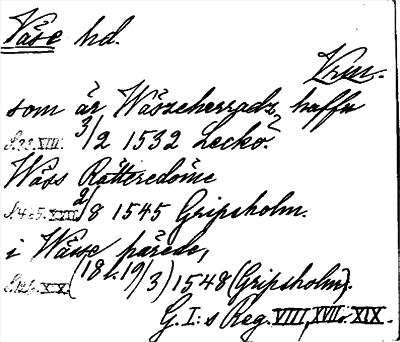 Väse hd.
Vrm.
som är Wäszeherradz haffu
S. 33. XIII. 3/2 1532 Leckö.
Wäss Rätteredöme
2/8 1545 Gripsholm.
i Wässe pärede,
(18 l. 19/3) 1548 (Gripsholm).
G. I:s Reg. VIII, XVII o. XIX.